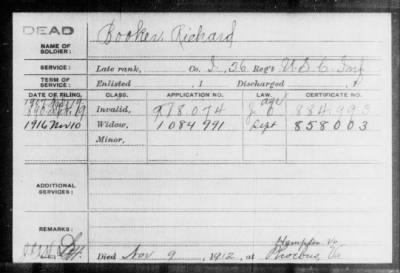 DEAD
NAME OF SOLDIER: Booker, Richard
SERVICE: Late rank, Co. I, 36 Reg't U.S.C. Inf
TERM OF SERVICE: Enlisted , 1 Discharged , 1
DATE OF FILING. CLASS. APPLICATION NO. LAW. CERTIFICATE NO.
Invalid, 978,074 884,993
1916 Nov 10 Widow, 1084991 Sept 858003
Minor,
ADDITIONAL SERVICES:
REMARKS:
Hampton Va
Died Nov 9, 1912, at Phoebus, Va